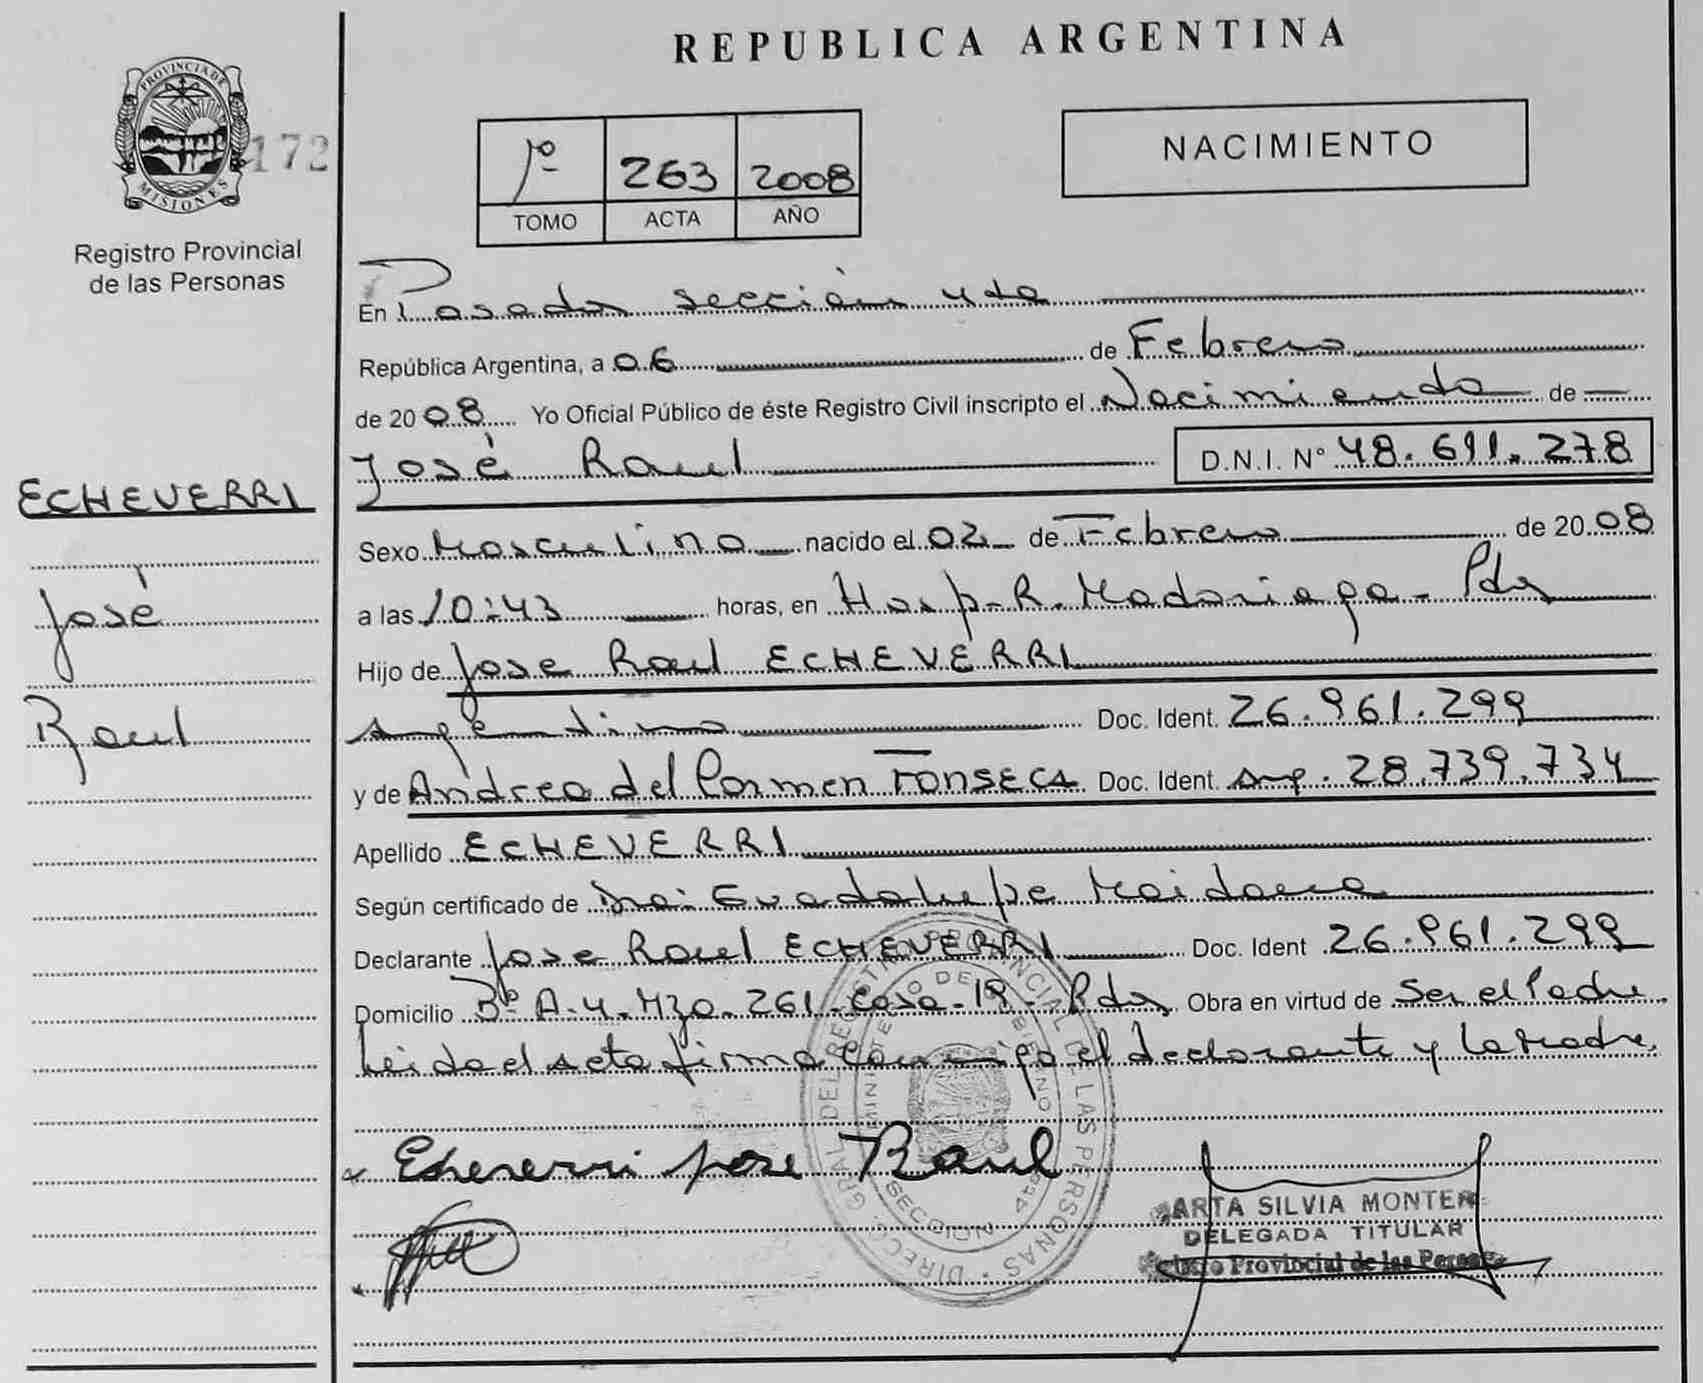 REPUBLICA ARGENTINA
PROVINCIA DE
MISIONES
172
Registro Provincial
de las Personas
1º 263 2008
TOMO ACTA AÑO
NACIMIENTO
En Posadas sección 4ta
República Argentina, a 06 de Febrero
de 2008 Yo Oficial Público de éste Registro Civil inscripto el Nacimiento de
José Raul D.N.I. Nº 48.611.278
ECHEVERRI
José
Raul
Sexo Masculino nacido el 02 de Febrero de 2008
a las 10:43 horas, en Hosp. R. Madariaga - Pdas
Hijo de Jose Raul ECHEVERRI
argentino Doc. Ident. 26.961.299
y de Andrea del Carmen FONSECA Doc. Ident. arg. 28.739.734
Apellido ECHEVERRI
Según certificado de Dra. Guadalupe Maidana
Declarante Jose Raul ECHEVERRI Doc. Ident 26.961.299
Domicilio Bº A-4. Mzo. 261 Casa-18- Pdas Obra en virtud de Ser el Padre
Leida el acta firma conmigo el declarante y la Madre
Echeverri jose Raul
ARTA SILVIA MONTER
DELEGADA TITULAR
Provincial de las Person
DIRECC. GRAL DEL REGISTRO PROVINCIAL DE LAS PERSONAS
MINISTERIO DE GOBIERNO
SECCION 4ta